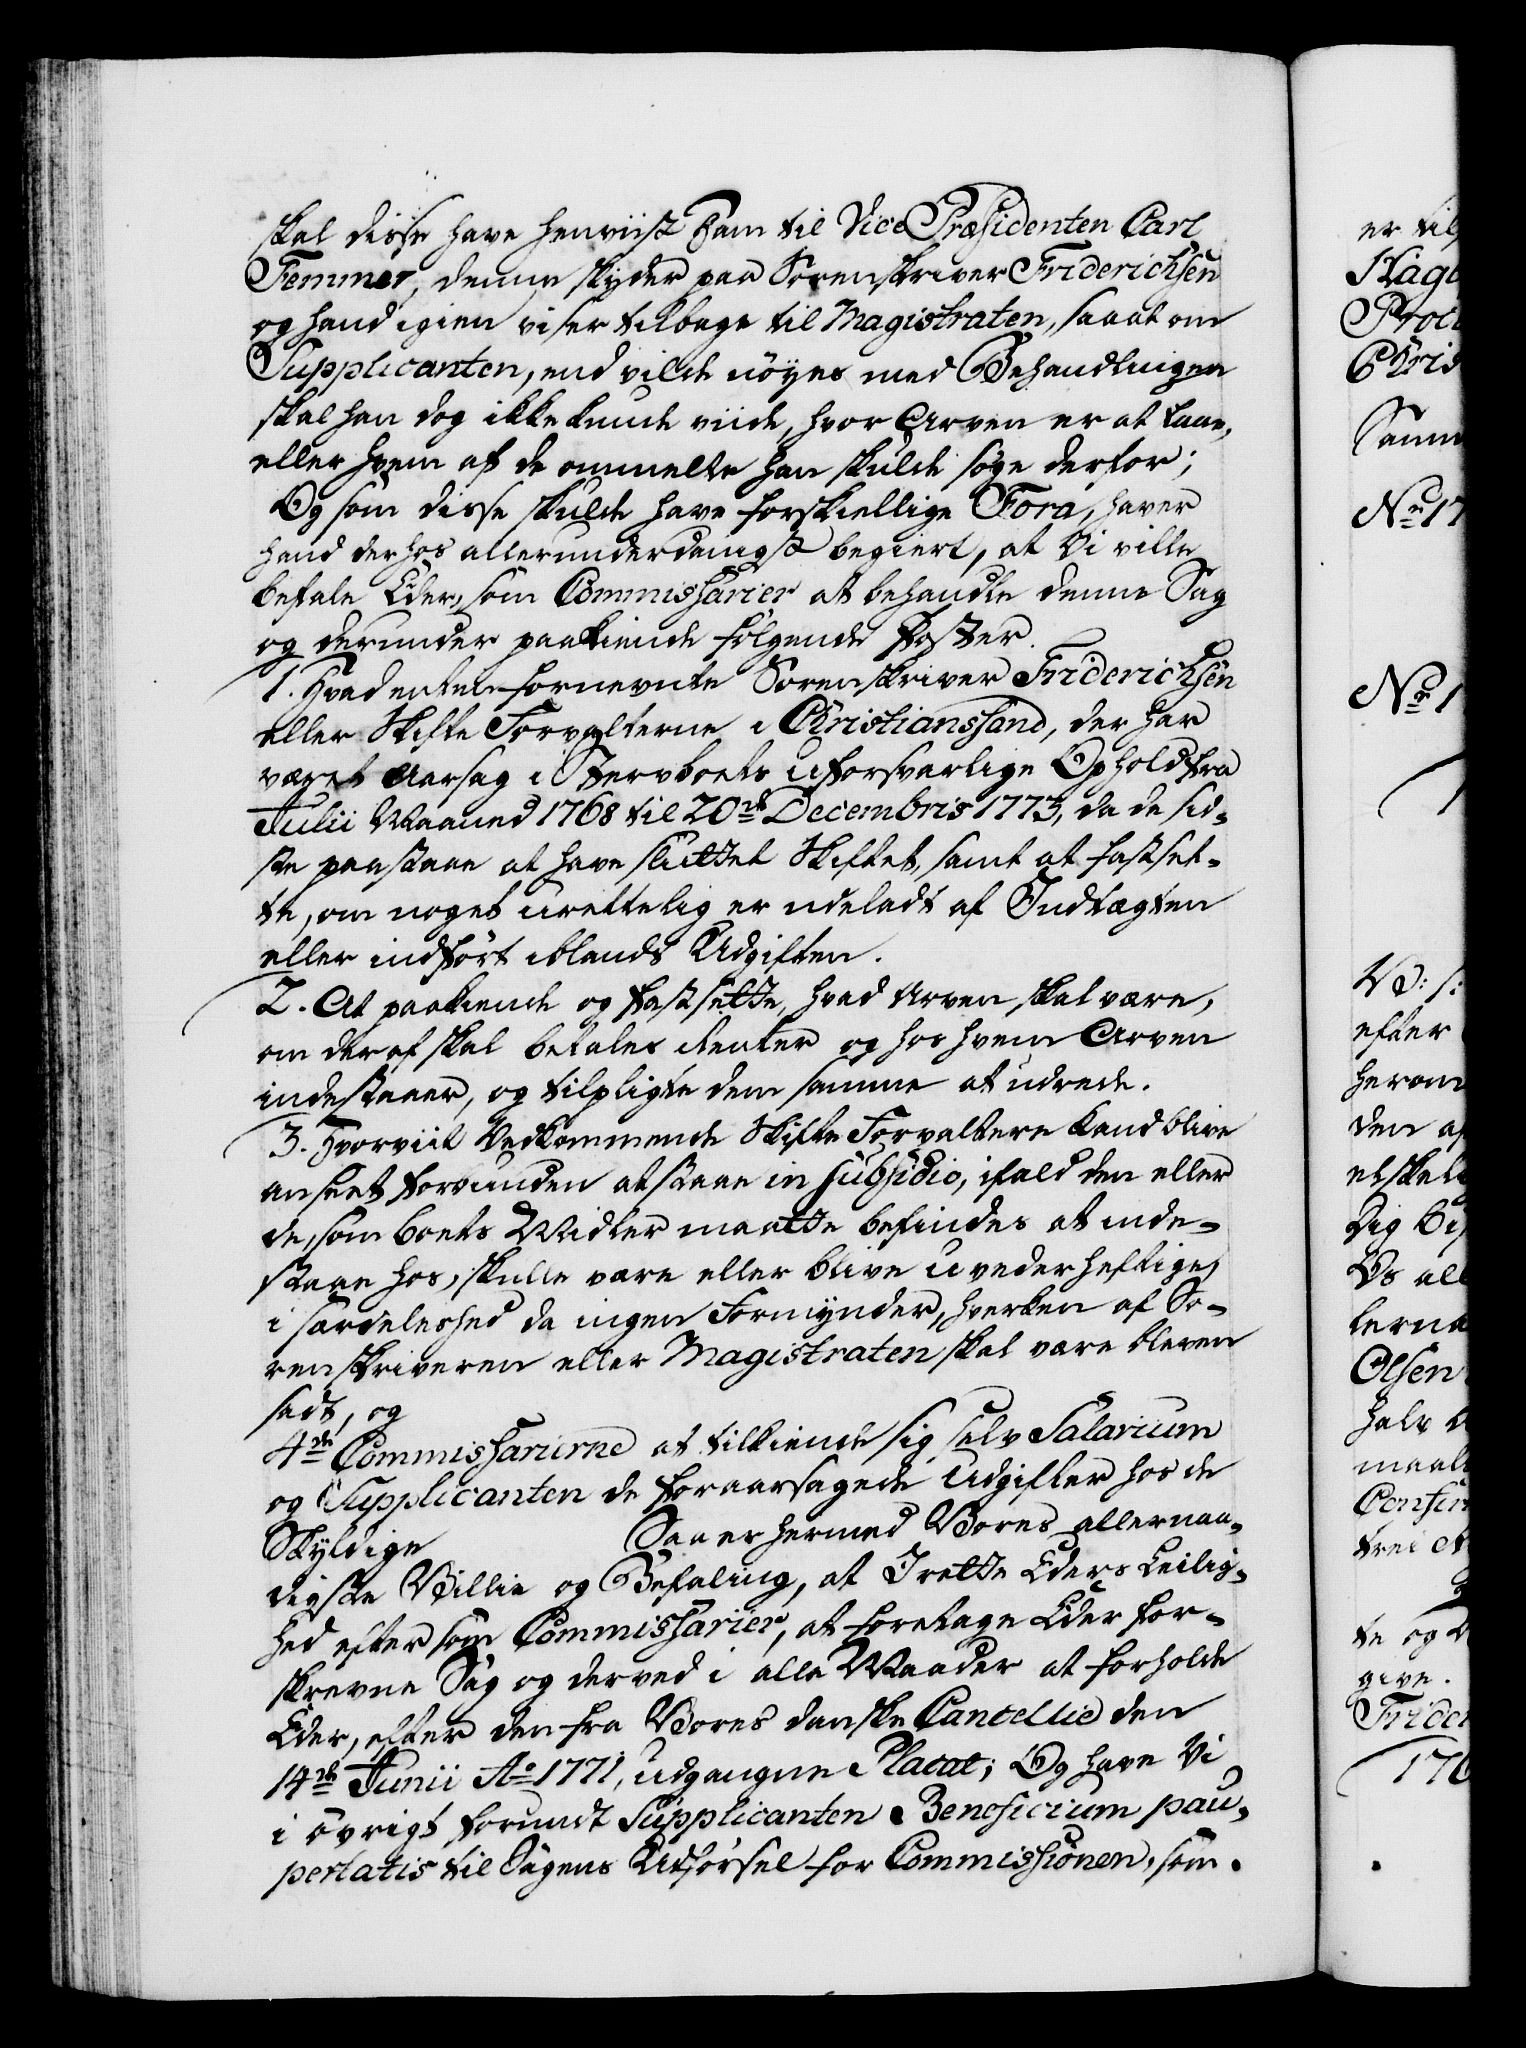 skal disse have henviist Ham til Vice Præsidenten Carl
Femmer, denne skyder paa Sorenskriver Friderichsen
og hand igien viser tilbage til Magistraten, saa at om
Supplicanten, end vilde nöyes med Behandlingen
skal han dog ikke kunde viide, hvor Arven er at faae,
eller hvem af de ommelte han skulde söge derfor;
Og som disse skulde have forskiellige Fora, haver
hand derhos allerunderdanigst begiert, at Vi ville
befale Eder, som Commissarier at behandle denne Sag
og derunder paakiende fölgende Poster.
1. Hvad enten fornevnte Sorenskriver Friderichsen
eller Skifte Forvalterne i Christianssand, der har
været Aarsag i Stervboets uforsvarlige Ophold fra
Julii Maaned 1768 til 20de Decembris 1773, da de sid-
ste paastaae at have sluttet Skiftet, samt at fastset-
te, om noget urettelig er udeladt af Indtægten
eller indfört iblandt Udgiften.
2. At paakiende og fastsette, hvad Arven skal være,
om deraf skal betales Renter og hos hvem Arven
indestaaer, og tilpligte dem samme at udrede.
3. Hvorviit Vedkommende Skifte Forvaltere kand blive
anseet forbunden at staae in subsidio, ifald den eller
de, som boets Midler maatte befindes at inde-
staae hos, skulle være eller blive uvederheftige,
i særdeleshed da ingen Formynder, hverken af So-
renskriveren eller Magistraten skal være bleven
sadt, og
4de Commissarierne at tilkiende sig selv Salarium
og Supplicanten de foraarsagede Udgifter hos de
Skyldige Saa er hermed Vores allernaa-
digste Villie og Befaling, at I rette Eders Leilig-
hed efter som Commissarier, at foretage Eder for-
skrevne Sag og derved i alle Maader at forholde
Eder, efter den fra Vores danske Cancellie den
14de Junii Ao 1771, udgangne Placat; Og have Vi
i övrigt forundt Supplicanten Beneficium pau-
pertatis til Sagens Udförsel for Commissionen, som